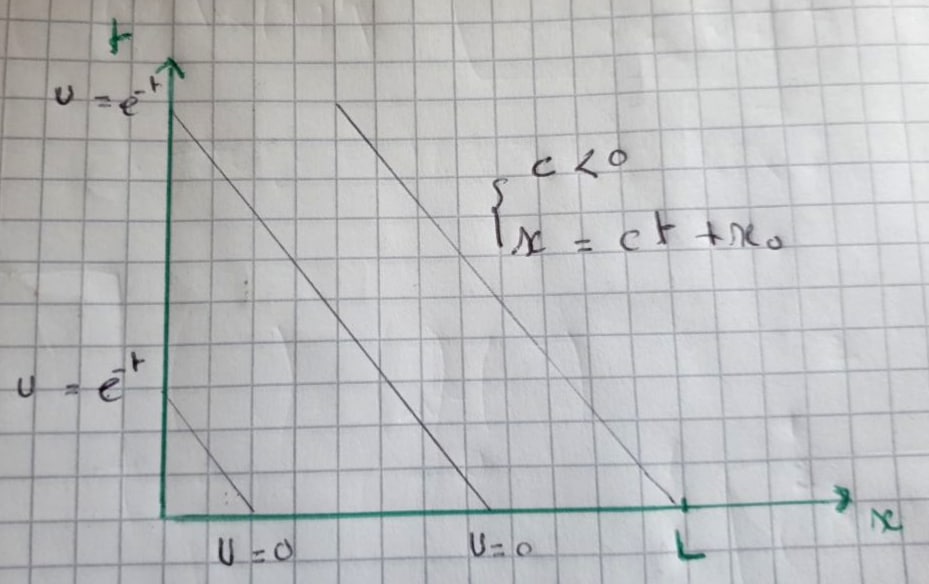 t
u = e^-t
c < 0
x = ct + x₀
u = e^-t
U = 0
U = 0
L
x